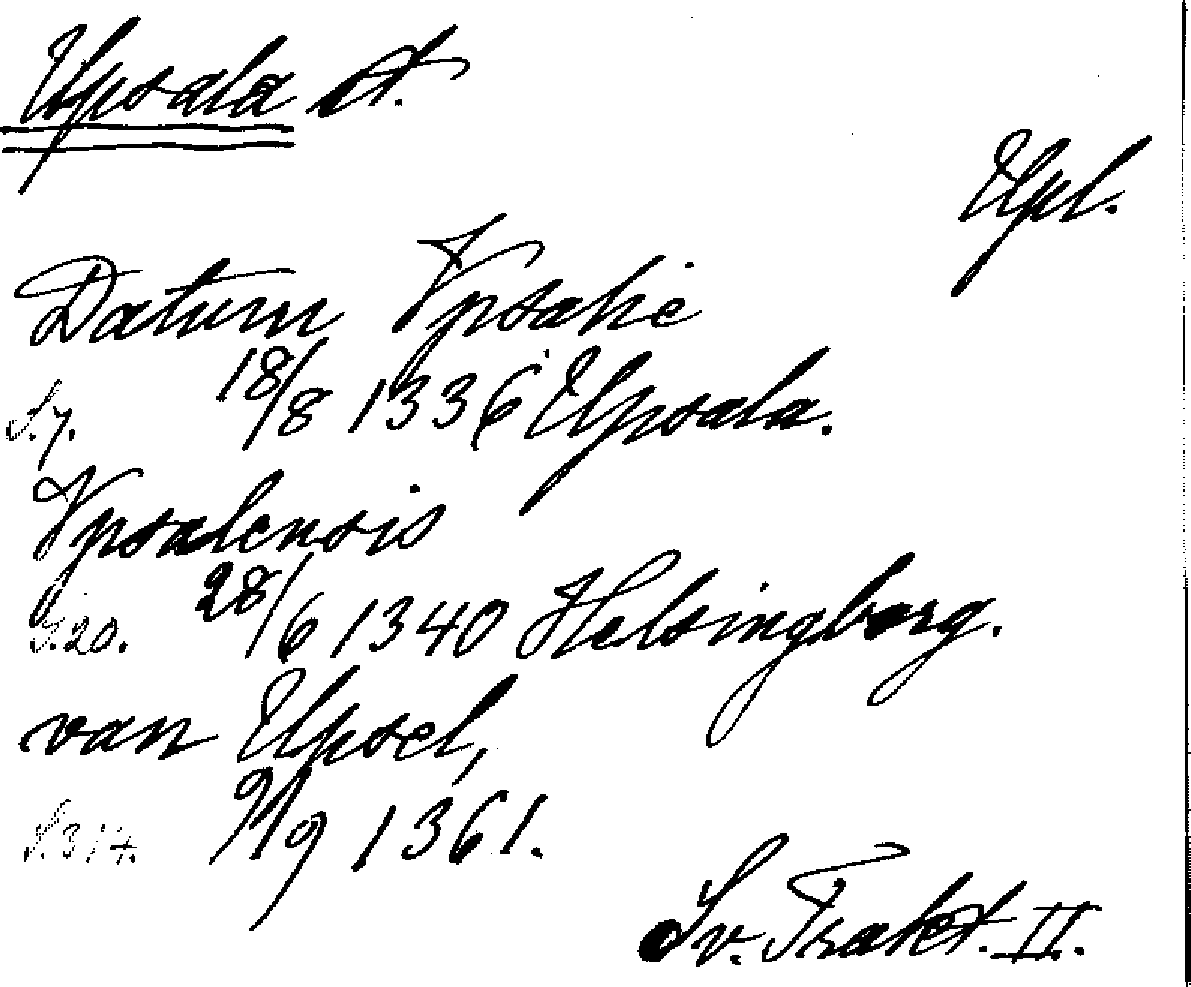 Upsala st.
Upl.
Datum Vpsalie
S. 7. 18/8 1336 Upsala.
Vpsalensis
S. 20. 28/6 1340 Helsingborg.
van Upsel,
S. 317. 9/9 1361.
Sv. Trakt. II.